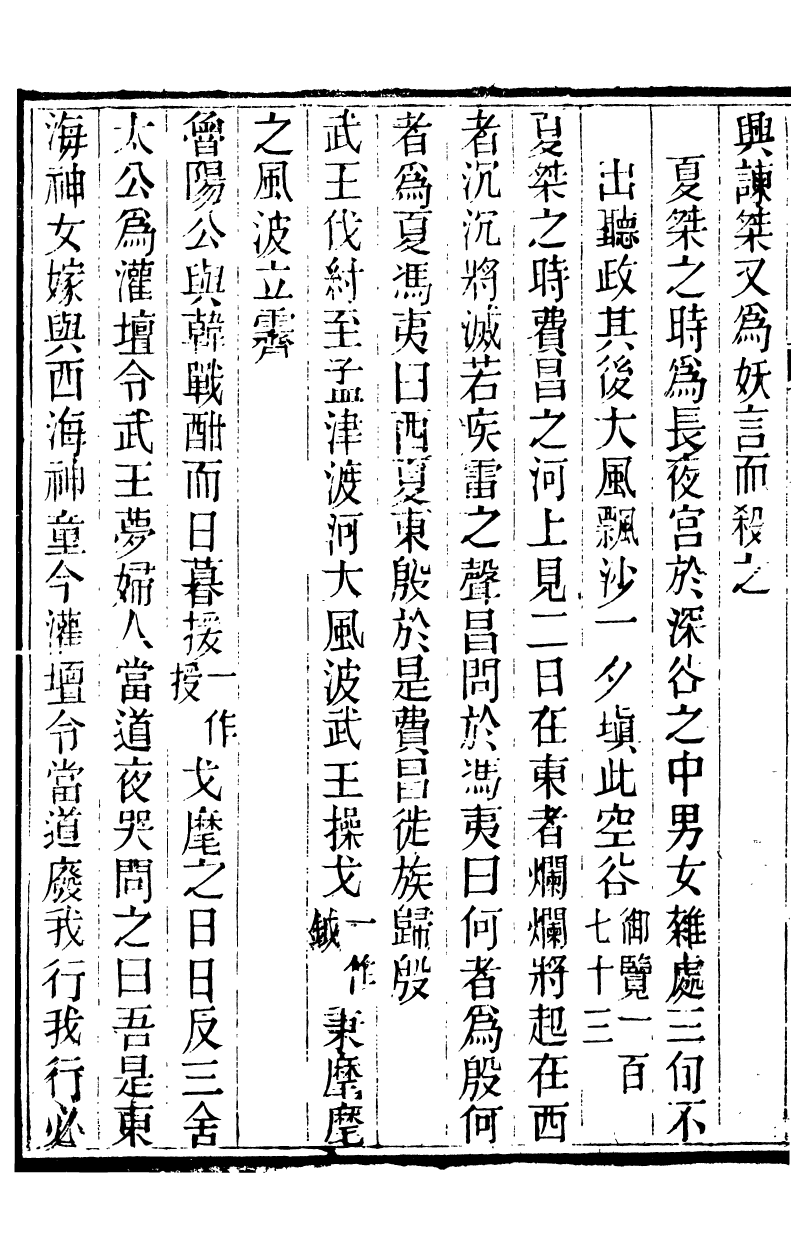 興諫桀又為妖言而殺之
夏桀之時為長夜宮於深谷之中男女雜處三旬不
出聽政其後大風飄沙一夕塡此空谷御覽一百七十三
夏桀之時費昌之河上見二日在東者爛爛將起在西
者沉沉將滅若疾雷之聲昌問於馮夷曰何者為殷何
者為夏馮夷曰西夏東殷於是費昌徙族歸殷
武王伐紂至孟津渡河大風波武王操戈一作鉞秉麾麾
之風波立霽
魯陽公與韓戰酣而日暮援一作授戈麾之日日反三舍
太公為灌壇令武王夢婦人當道夜哭問之曰吾是東
海神女嫁與西海神童今灌壇令當道廢我行我行必